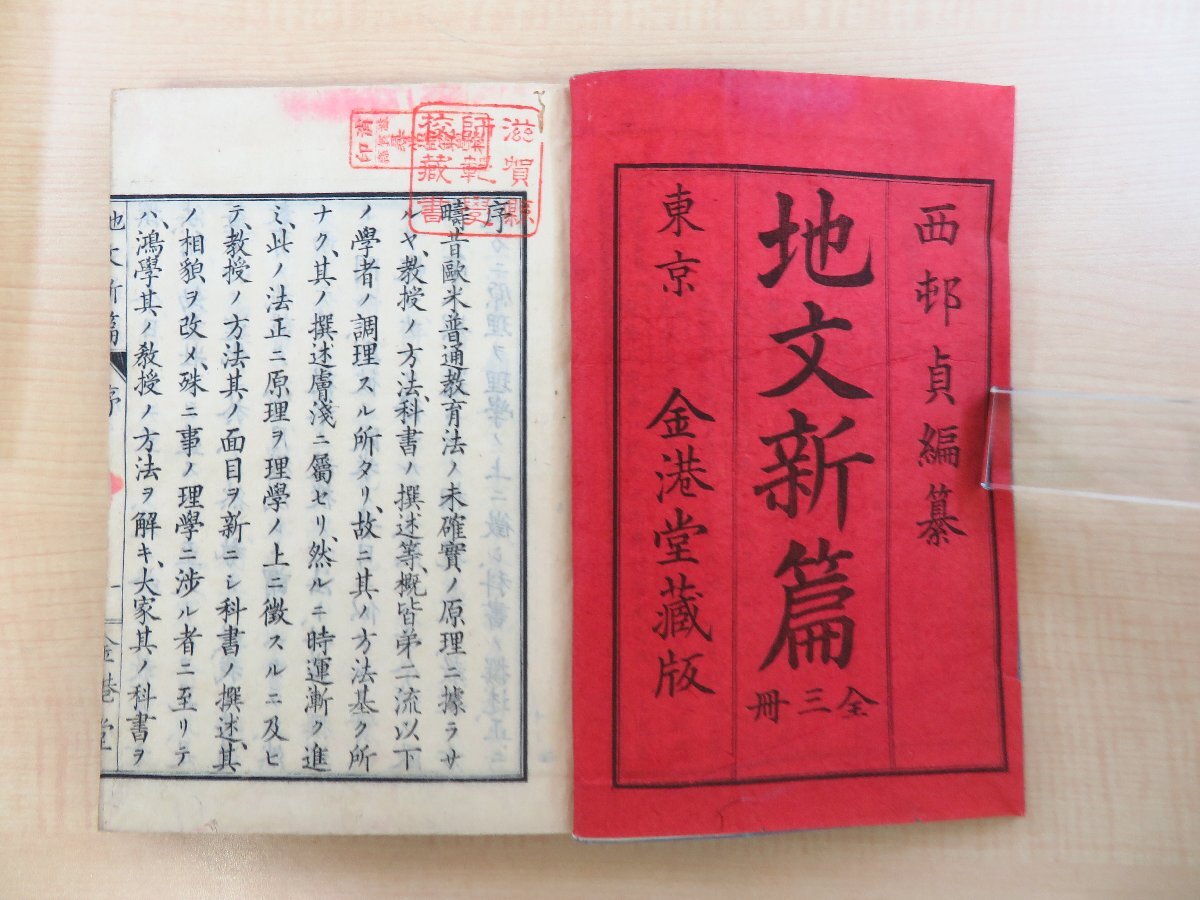 西邨貞編纂
地文新篇
全三冊
東京 金港堂藏版
滋賀縣
師範學
校藏書
序
疇昔歐米普通教育法ノ未確實ノ原理ニ據ラサ
ルヤ、教授ノ方法、科書ノ撰述等、概皆第二流以下
ノ學者ノ調理スル所タリ、故ニ其ノ方法基ク所
ナク、其ノ撰述膚淺ニ屬セリ、然ルニ時運漸ク進
ミ、此ノ法正ニ原理ヲ理學ノ上ニ徴スルニ及ヒ
テ、教授ノ方法其ノ面目ヲ新ニシ科書ノ撰述、其
ノ相貌ヲ改メ、殊ニ事ノ理學ニ渉ル者ニ至リテ
ハ、鴻學其ノ教授ノ方法ヲ解キ、大家其ノ科書ヲ
地文新篇 序 一 金港堂